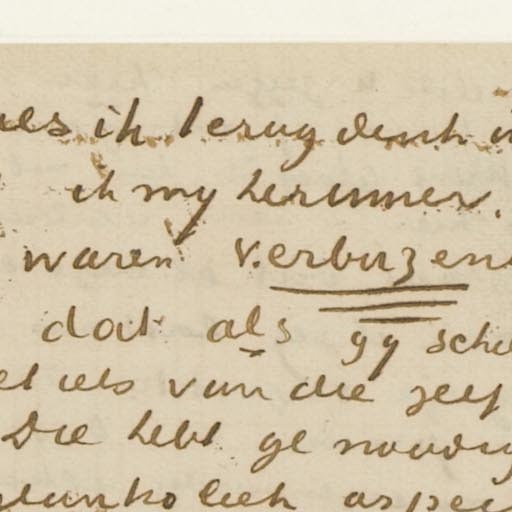 als ik terug denk
ik my herinner.
waren verbazen
dat als gy sche
iets van die zelf
Die hebt ge noodig
melankoliek aspec